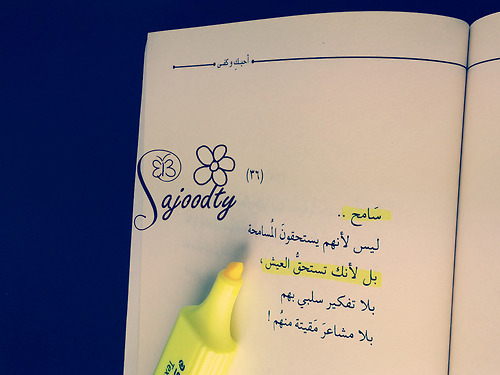 أحبكِ وكفى
(٣٦)
Sajoodty
سَامح ..
ليس لأنهم يستحقونَ المُسامحة
بل لأنك تستحقُّ العيش ،
بلا تفكير سلبي بهم
بلا مشاعرَ مَقيتة منهُم !